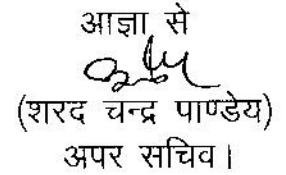 आज्ञा से
(शरद चन्द्र पाण्डेय)
अपर सचिव।